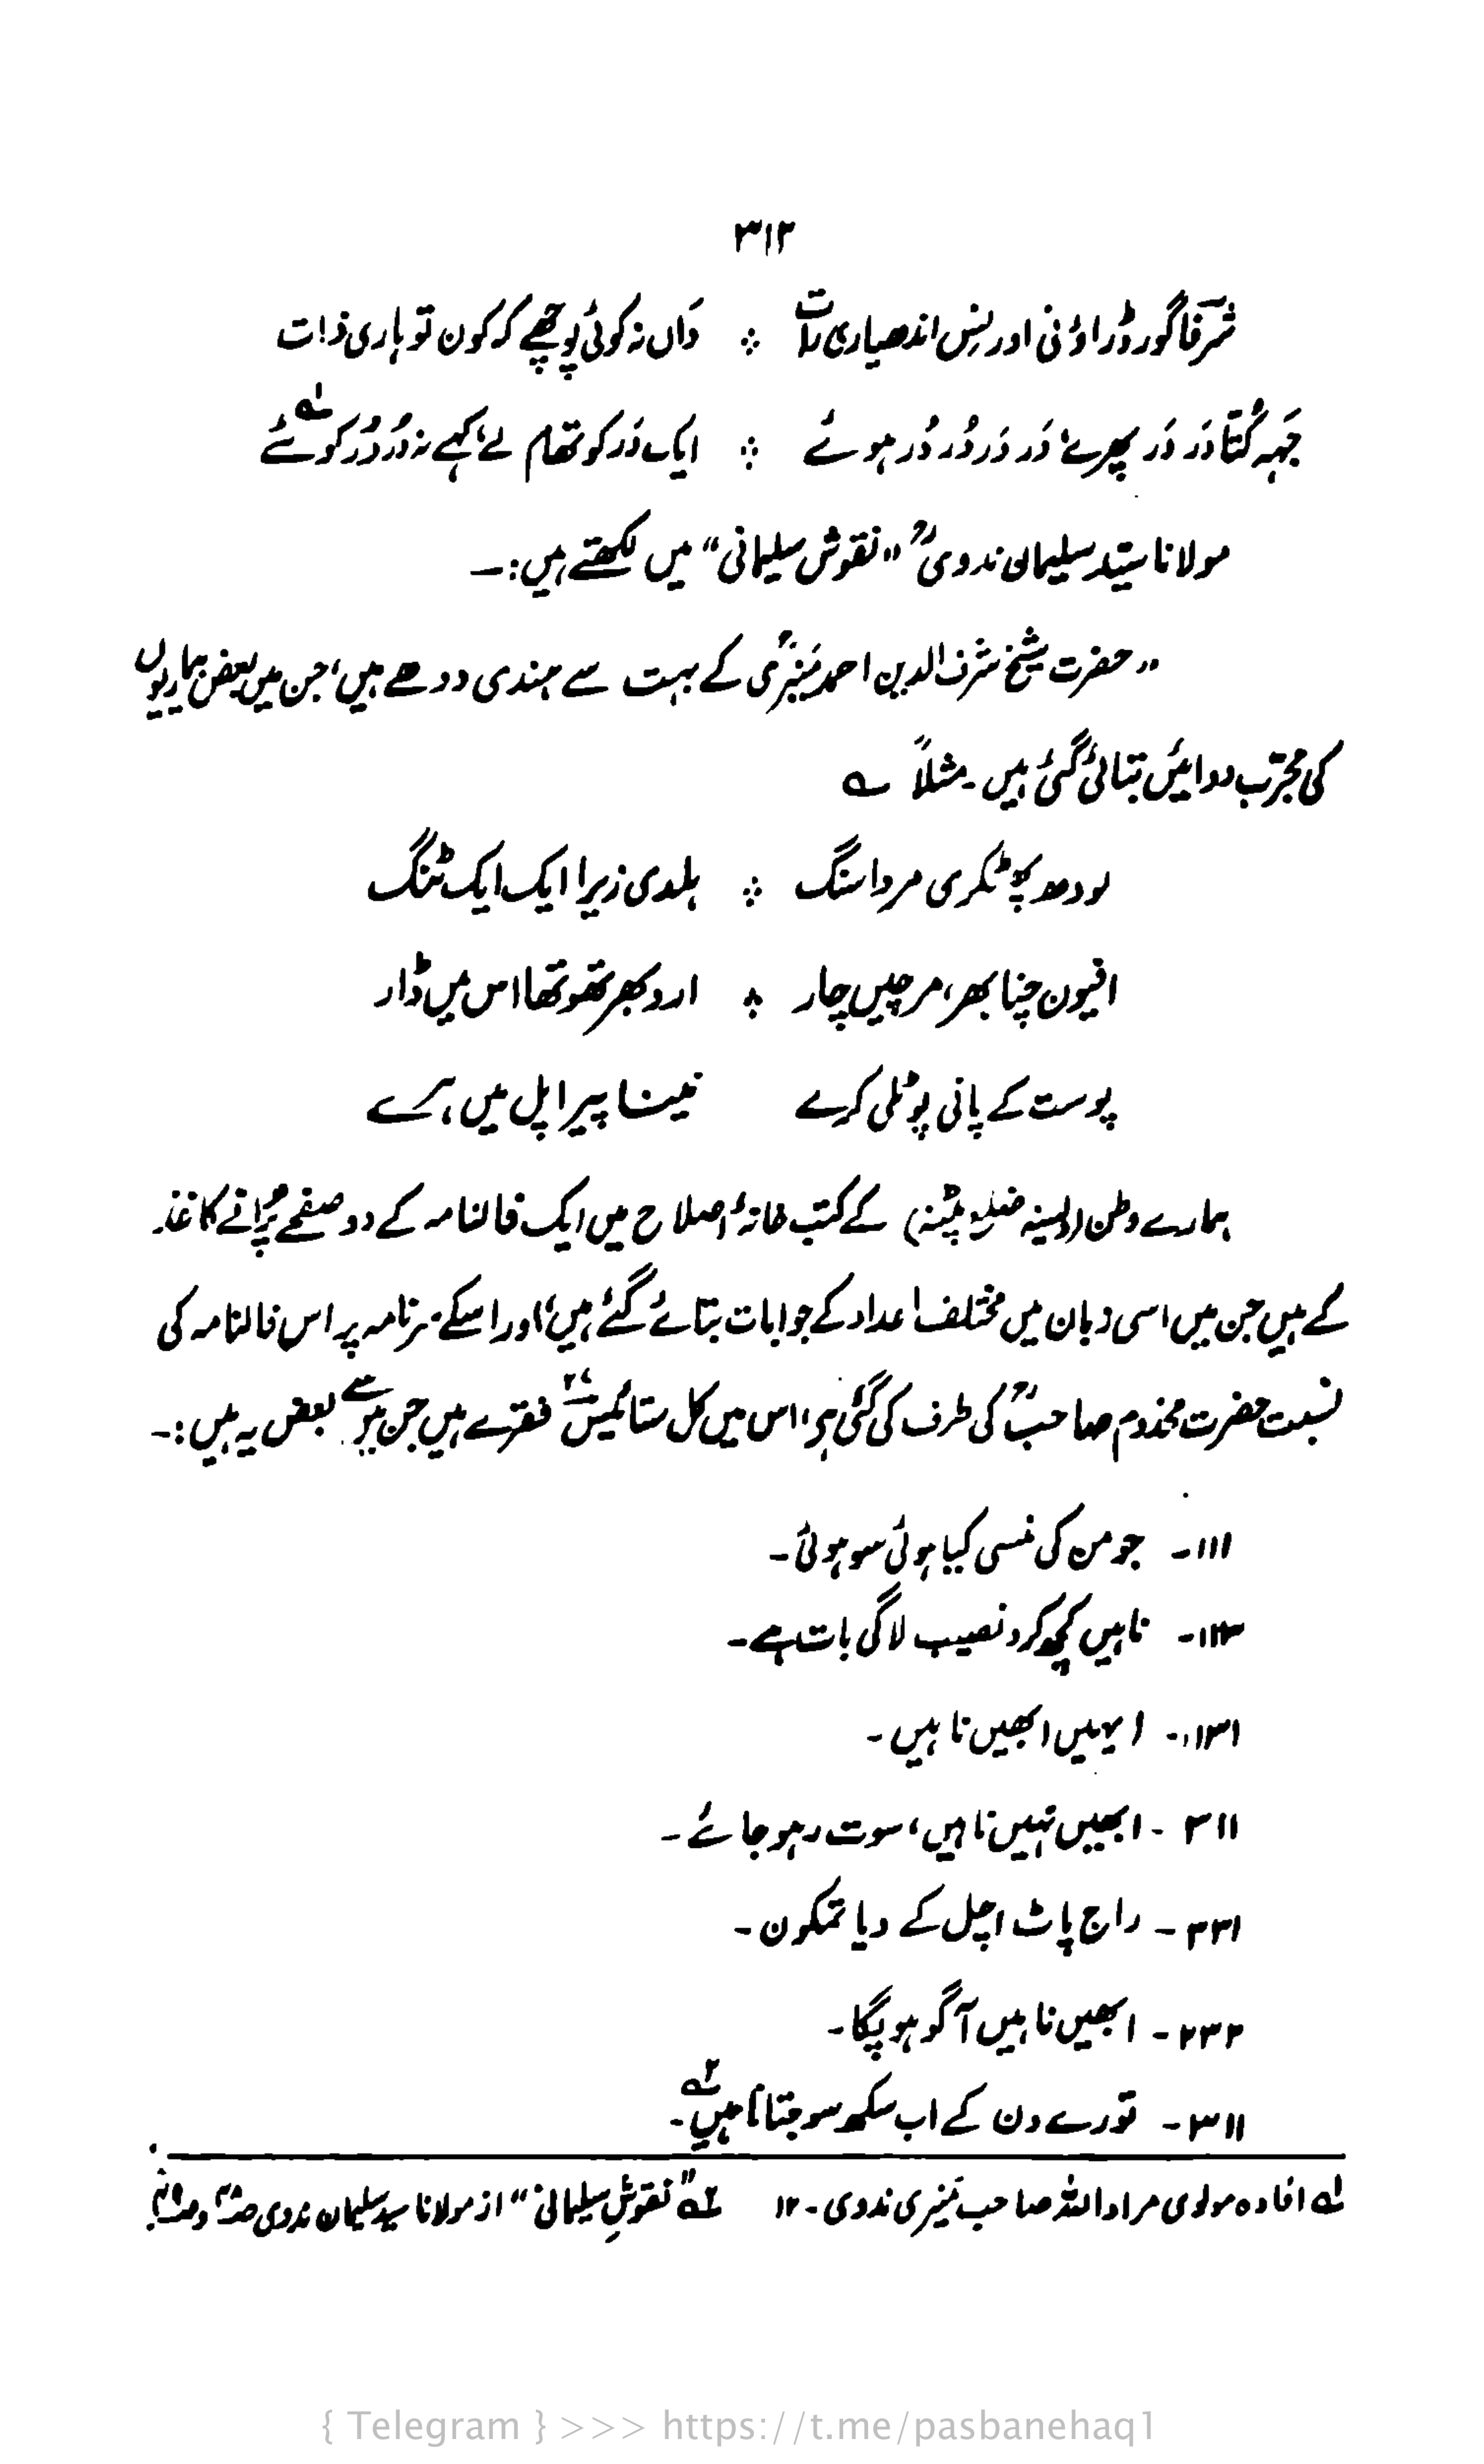 ۳۱۲
شرفا گور ڈراؤنی اور نس اندھیاری رات ⁘ وَاں نہ کوئی پوچھے کہ کون تو ہاری ذات
جَہہ کُتّا دَر دَر پھرے، دَر دَر دُر دُر ہوئے ⁘ ایک دَر کو تھام لے، کہے نہ دُر دُر کوئے ؂۱
مولانا سیّد سلیمان ندویؒ "نقوش سلیمانی" میں لکھتے ہیں:۔
"حضرت شیخ شرف الدین احمد مَنیریؒ کے بہت سے ہندی دوہے ہیں، جن میں بعض بیماریوں
کی مجرّب دوائیں بتائی گئی ہیں۔ مثلاً ؎
لودھ پھٹکری مرداسنگ ⁘ ہلدی زیرا ایک ایک ٹنگ
افیون چنا بھر، مرچیں چار ⁘ ارد بھر تھوتھا اس میں ڈار
پوست کے پانی پوٹلی کرے نینا پیرا پل میں ہرے
ہمارے وطن (دیسنہ ضلع پٹنہ) کے کتب خانۂ اصلاح میں ایک فالنامہ کے دو صفحے پُرانے کاغذ
کے ہیں جن میں اسی زبان میں مختلف اعداد کے جوابات بتائے گئے ہیں، اور اسکے سرنامہ پر اس فالنامہ کی
نسبت حضرت مخدوم صاحبؒ کی طرف کی گئی ہے، اس میں کل ستائیس ۲۷ فقرے ہیں جن میں سے بعض یہ ہیں:۔
۱۱۱۔ جو من کی منسی کیا ہوئی سو ہوئی۔
۱۱۳۔ ناہیں کچھ کرد نصیب لاگی بات ہے۔
۱۳۱۔ ایہیں ابھیں ناہیں۔
۳۱۱۔ ابھیں نہیں ناہیں، سوت رہو جائے۔
۳۳۱۔ راج پاٹ اچل کے دیا تمکون۔
۲۳۲۔ ابھیں ناہیں آگو ہوئیگا۔
۳۱۱۔ تورے دن کے اب سکھ سو جتا ناہیں ؂۲۔
؂۱ افادہ مولوی مراد اللہ صاحب مَنیری ندوی۔ ۱۲ ؂۲ "نقوشِ سلیمانی" از مولانا سید سلیمان ندوی
{ Telegram } >>> https://t.me/pasbanehaq1